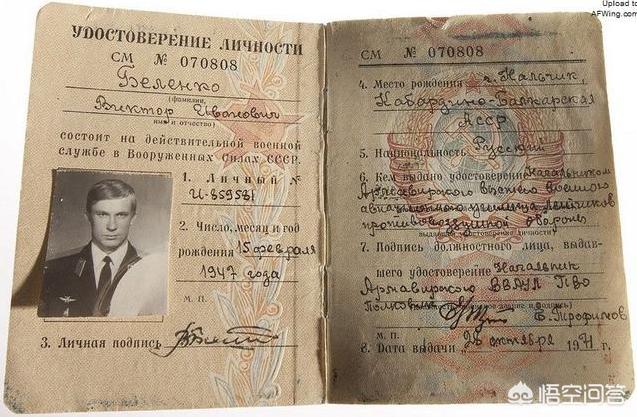 Upload to
AFWing.com
УДОСТОВЕРЕНИЕ ЛИЧНОСТИ
СМ № 070808
Беленко
(фамилия,
Виктор Иванович
имя и отчество)
состоит на действительной военной
службе в Вооруженных Силах СССР.
1. Личный №
И-859581
2. Число, месяц и год
рождения 15 февраля
1947 года
м. п.
3. Личная подпись
СМ № 070808
4. Место рождения г. Нальчик,
Кабардино-Балкарская
АССР
5. Национальность Русский
6. Кем выдано удостоверение Начальником
Армавирского высшего военного
авиационного училища летчиков
противовоздушной обороны
7. Подпись должностного лица, выдав-
шего удостоверение Начальник
Армавирского ВВАУЛ ПВО
Полковник Е. Трофимов
м. п.
8. Дата выдачи 26 октября 1971 г.
悟空问答